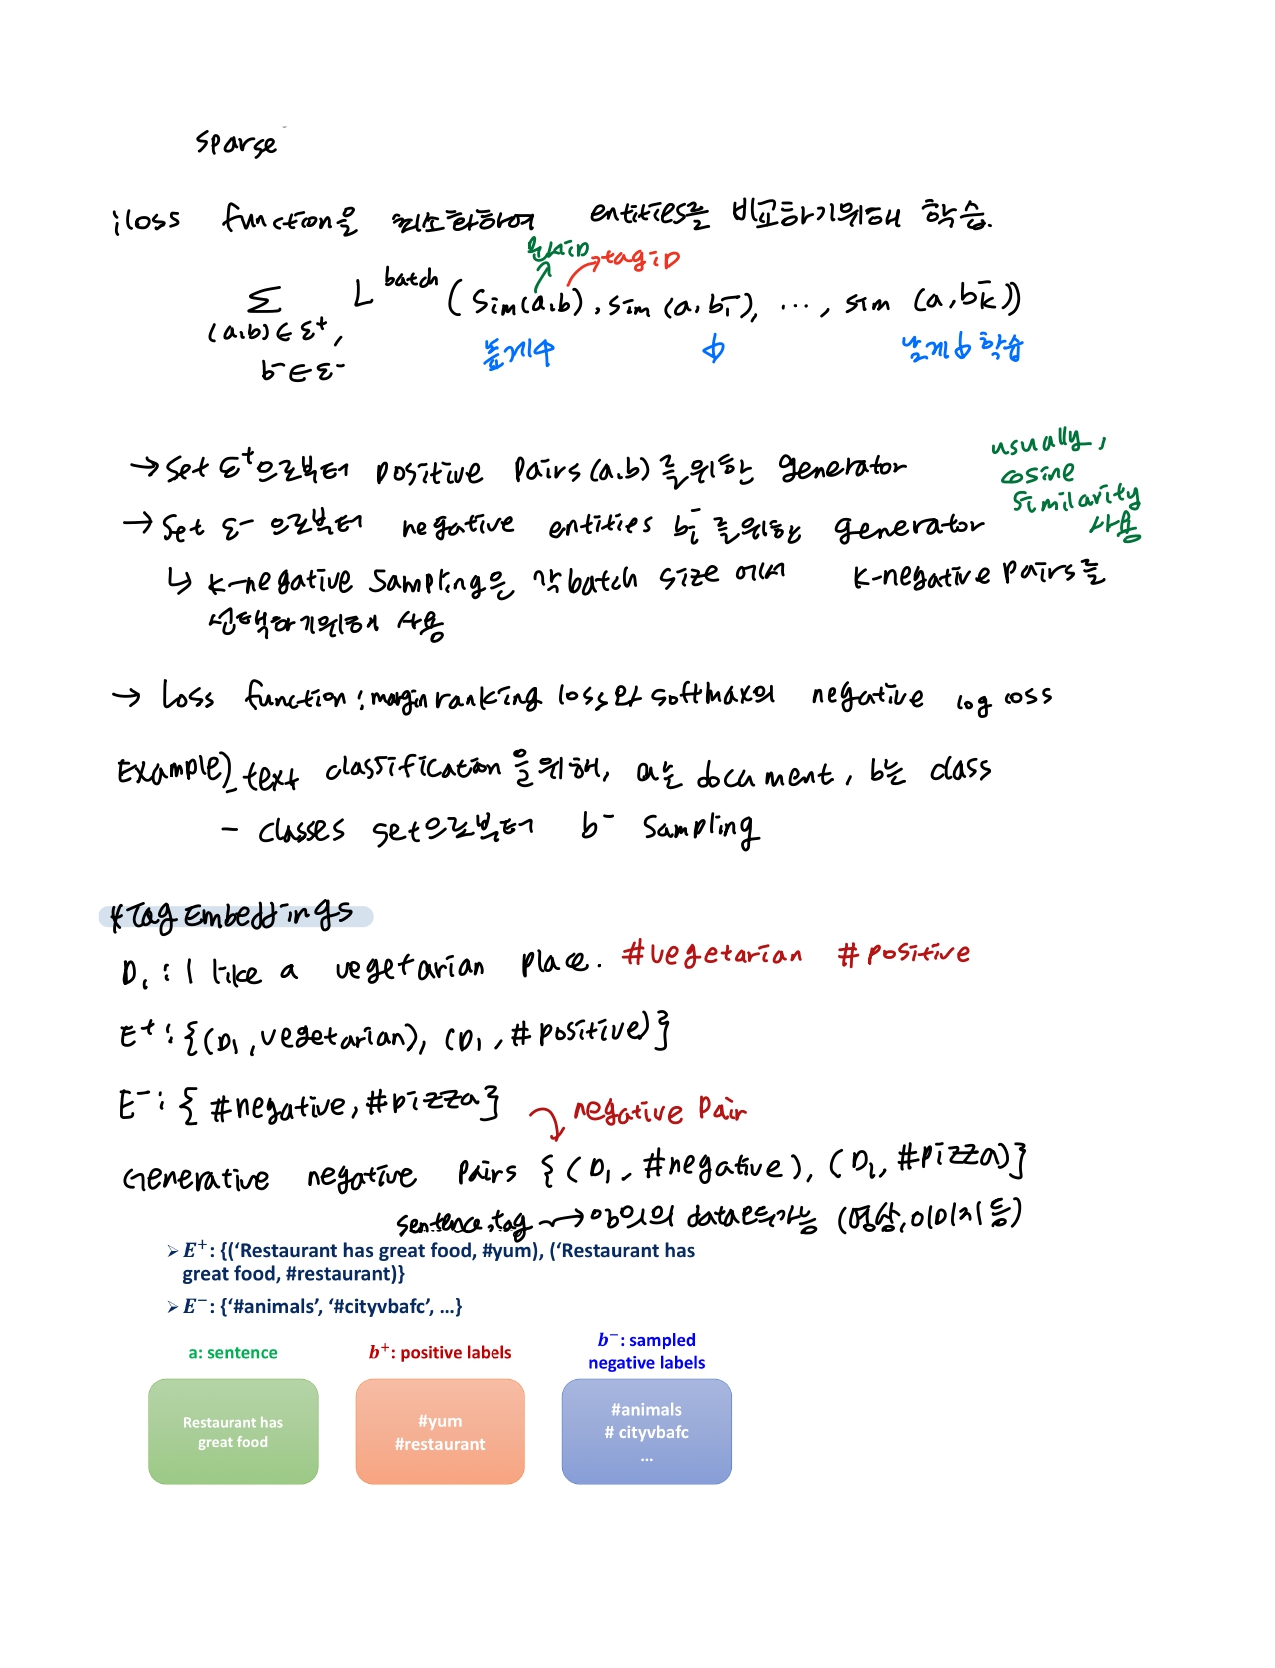 sparse
: loss function을 최소화하여 entities를 비교하기위해 학습.
문서ID tag iD
∑ L^batch (Sim(a,b), sim(a,b₁⁻), ..., sim (a,bₖ⁻))
(a,b)∈Σ⁺,
b⁻∈Σ⁻
높게↑ ↓ 낮게↓ 학습
→ Set Σ⁺으로부터 positive Pairs(a.b)를위한 generator
usually,
cosine
similarity
사용
→ Set Σ⁻으로부터 negative entities bᵢ⁻를위한 generator
↳ K-negative Sampling은 각batch size에서 K-negative pairs를
선택하기위해서 사용
→ Loss function : margin ranking loss와 softmax의 negative log loss
Example) text classification을위해, a는 document, b는 class
- classes set으로부터 b⁻ sampling
* Tag Embeddings
D₁ : I like a vegetarian place. #vegetarian #positive
E⁺ : {(D₁, vegetarian), (D₁, #positive)}
E⁻ : { #negative, #pizza}
negative pair
Generative negative Pairs {(D₁, #negative), (D₁, #pizza)}
sentence, tag → 임의의 data도가능 (영상,이미지등)
➢ E⁺: {(‘Restaurant has great food, #yum), (‘Restaurant has
great food, #restaurant)}
➢ E⁻: {‘#animals’, ‘#cityvbafc’, …}
a: sentence
b⁺: positive labels
b⁻: sampled
negative labels
Restaurant has
great food
#yum
#restaurant
#animals
# cityvbafc
…